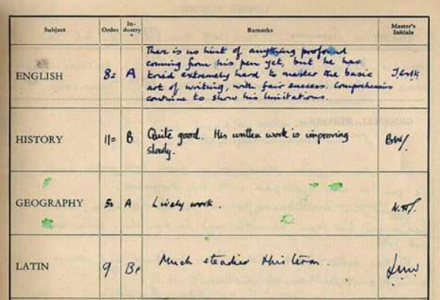 Subject Order In-dustry* Remarks Master's Initials
ENGLISH 8= A There is no hint of anything profound
coming from his pen yet, but he has
tried extremely hard to master the basic
art of writing, with fair success. Comprehension
continue to show his limitations.
HISTORY 11= B Quite good. His written work is improving
slowly.
GEOGRAPHY A Lively work.
LATIN 9 B+ Much steadier this term.